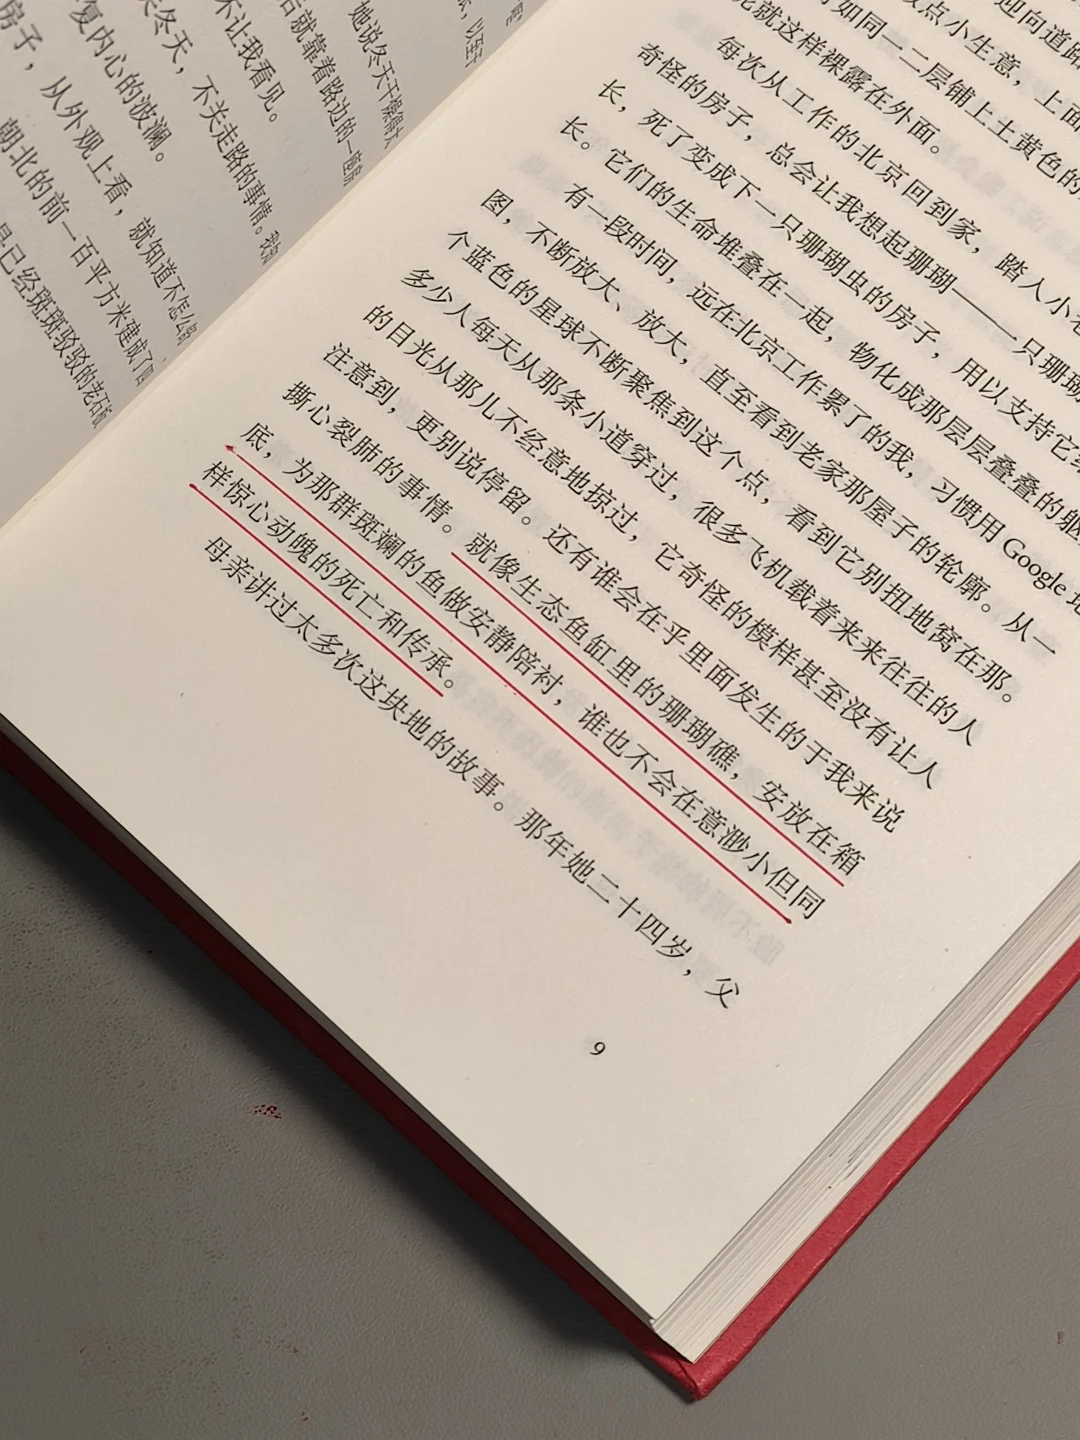 她说冬天干燥
后就靠着路边的一
不让我看见。
冬天，不关走路的事情。我
复内心的波澜。
房子，从外观上看，就知道不怎么
朝北的前一百平方米建成了
是已经斑斑驳驳的老石板
迎向道路
做点小生意，上面
如同一二层铺上土黄色的
就这样裸露在外面。
每次从工作的北京回到家，踏入小巷
奇怪的房子，总会让我想起珊瑚——一只珊瑚
长，死了变成下一只珊瑚虫的房子，用以支持它继
长。它们的生命堆叠在一起，物化成那层层叠叠的躯
有一段时间，远在北京工作累了的我，习惯用 Google 地
图，不断放大、放大，直至看到老家那屋子的轮廓。从一
个蓝色的星球不断聚焦到这个点，看到它别扭地窝在那。
多少人每天从那条小道穿过，很多飞机载着来来往往的人
的目光从那儿不经意地掠过，它奇怪的模样甚至没有让人
注意到，更别说停留。还有谁会在乎里面发生的于我来说
撕心裂肺的事情。就像生态鱼缸里的珊瑚礁，安放在箱
底，为那群斑斓的鱼做安静陪衬，谁也不会在意渺小但同
样惊心动魄的死亡和传承。
母亲讲过太多次这块地的故事。那年她二十四岁，父
9